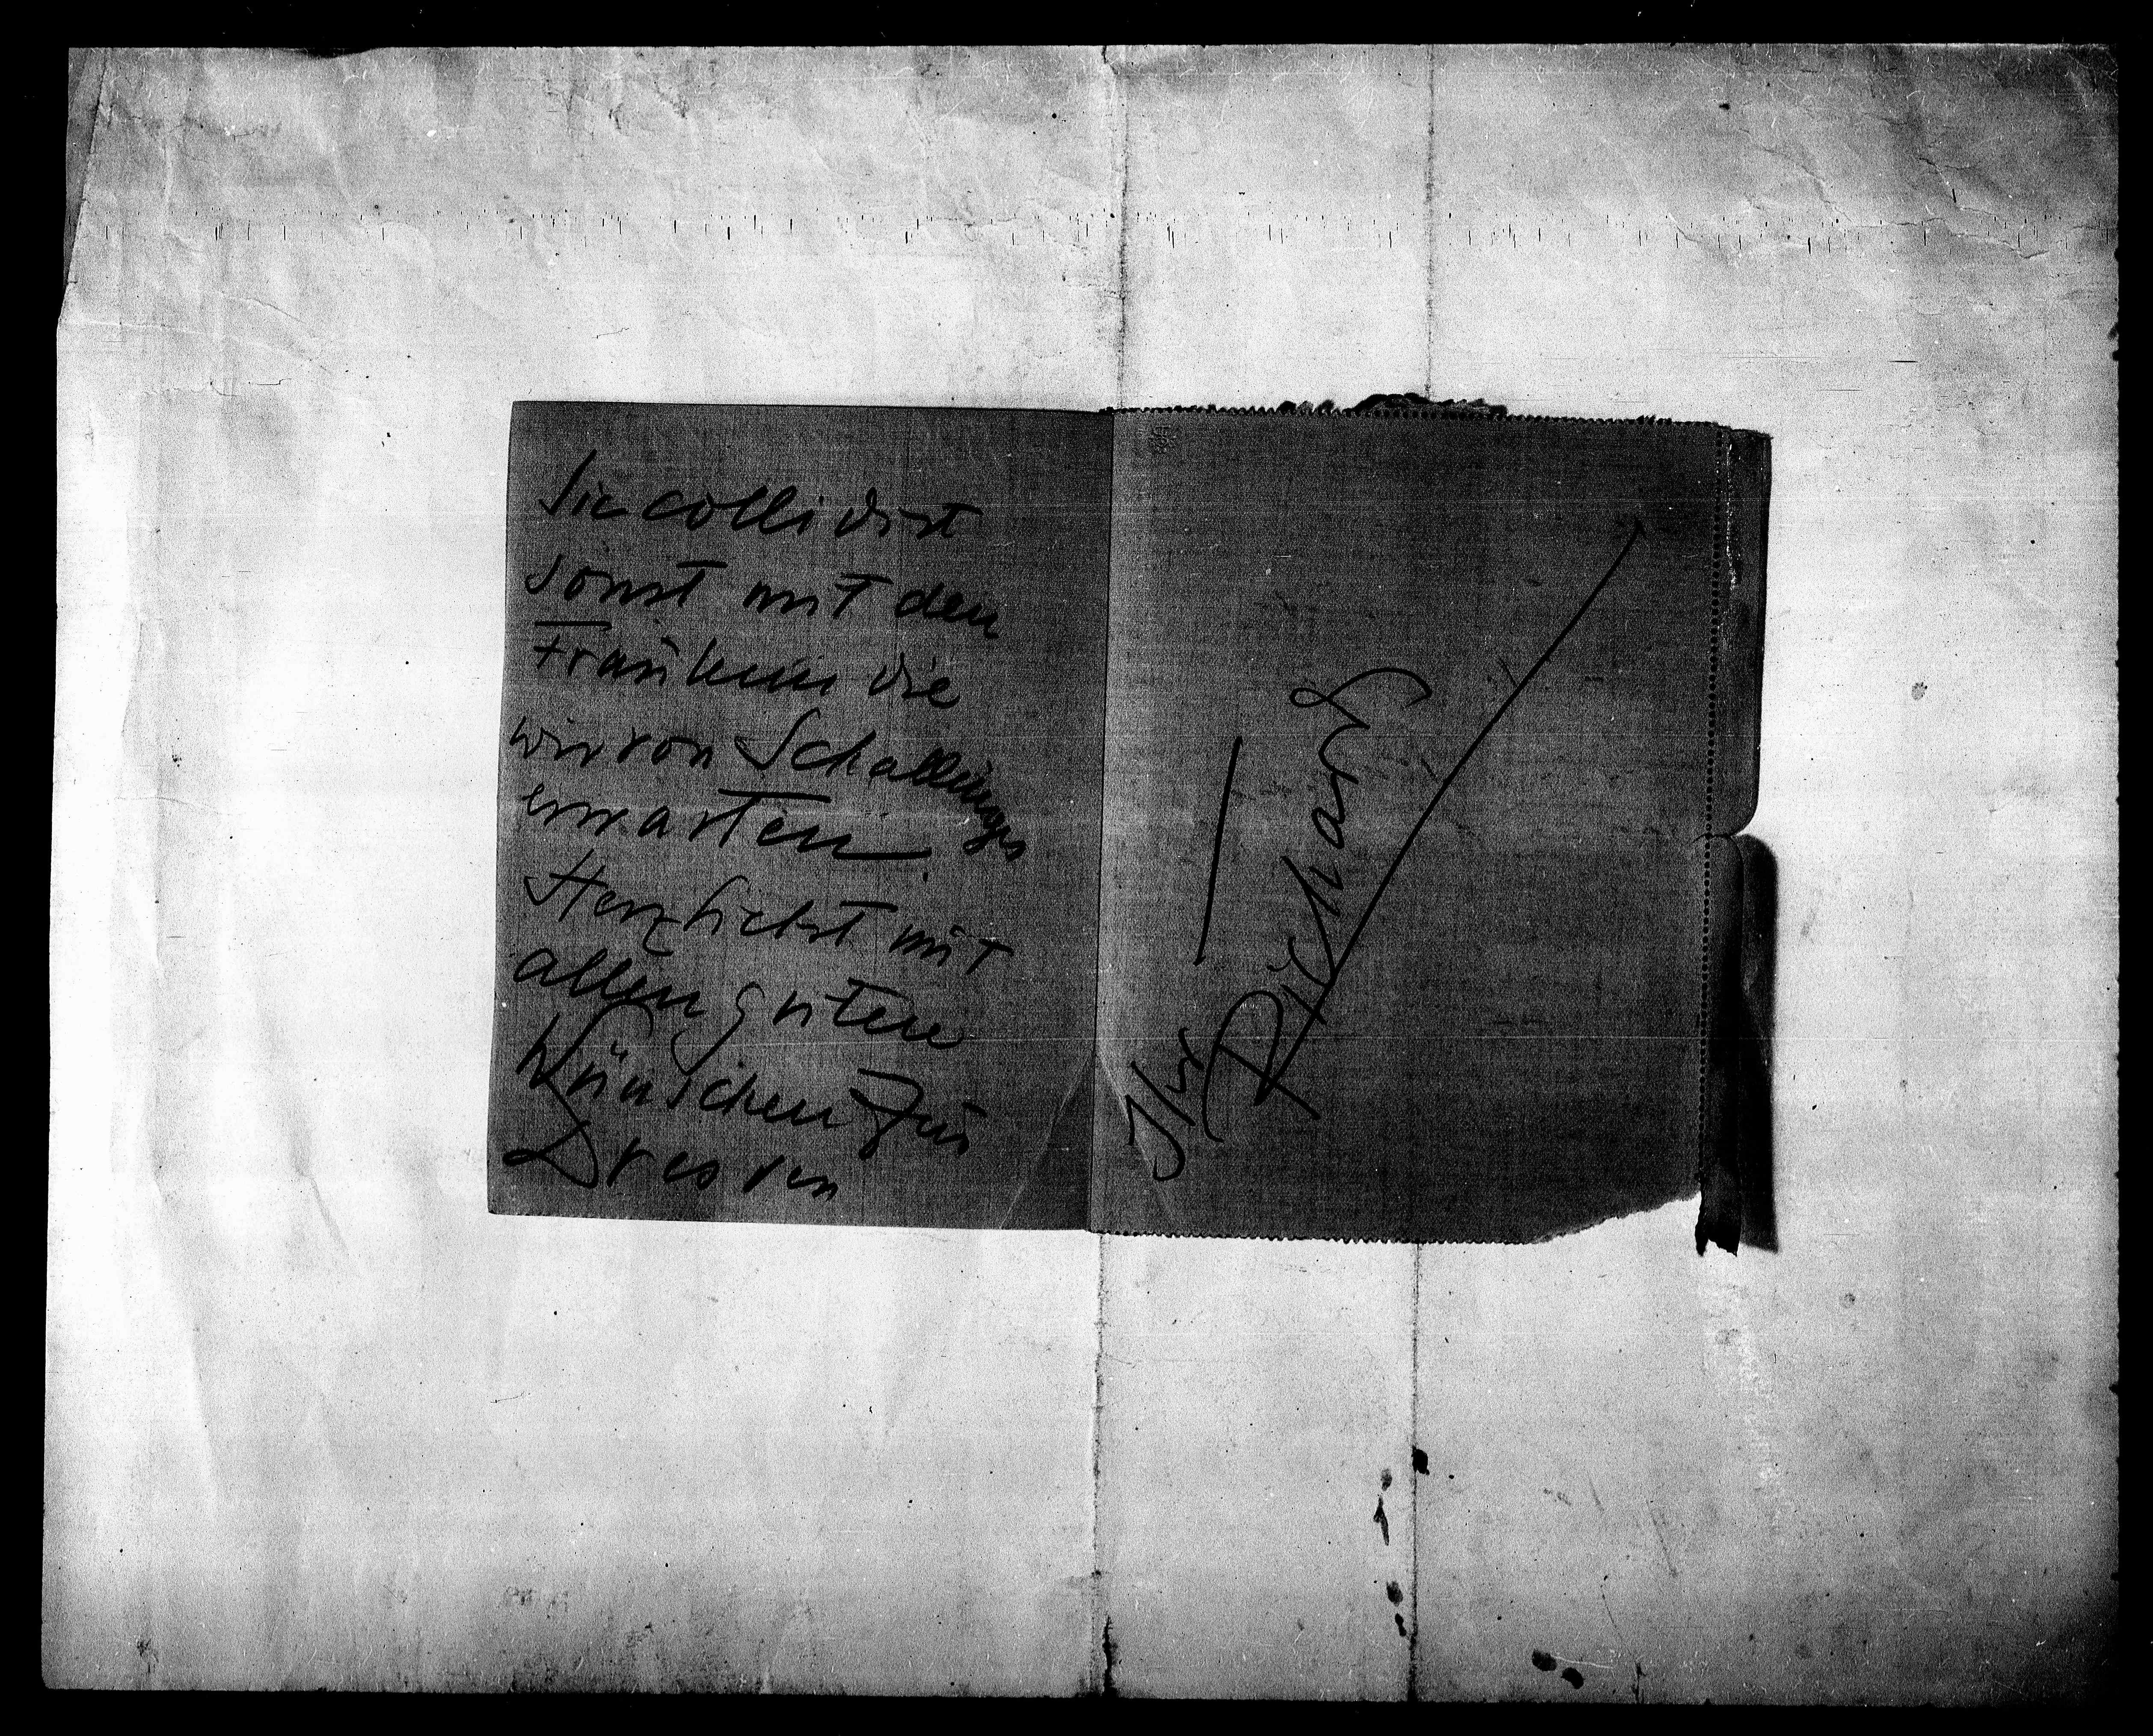 Sie collidirt
sonst mit den
Fräulein die
wir von Schallings
erwarten.
Herzlichst mit
allen guten
Wünschen für
Dresden
Ihr
Richard